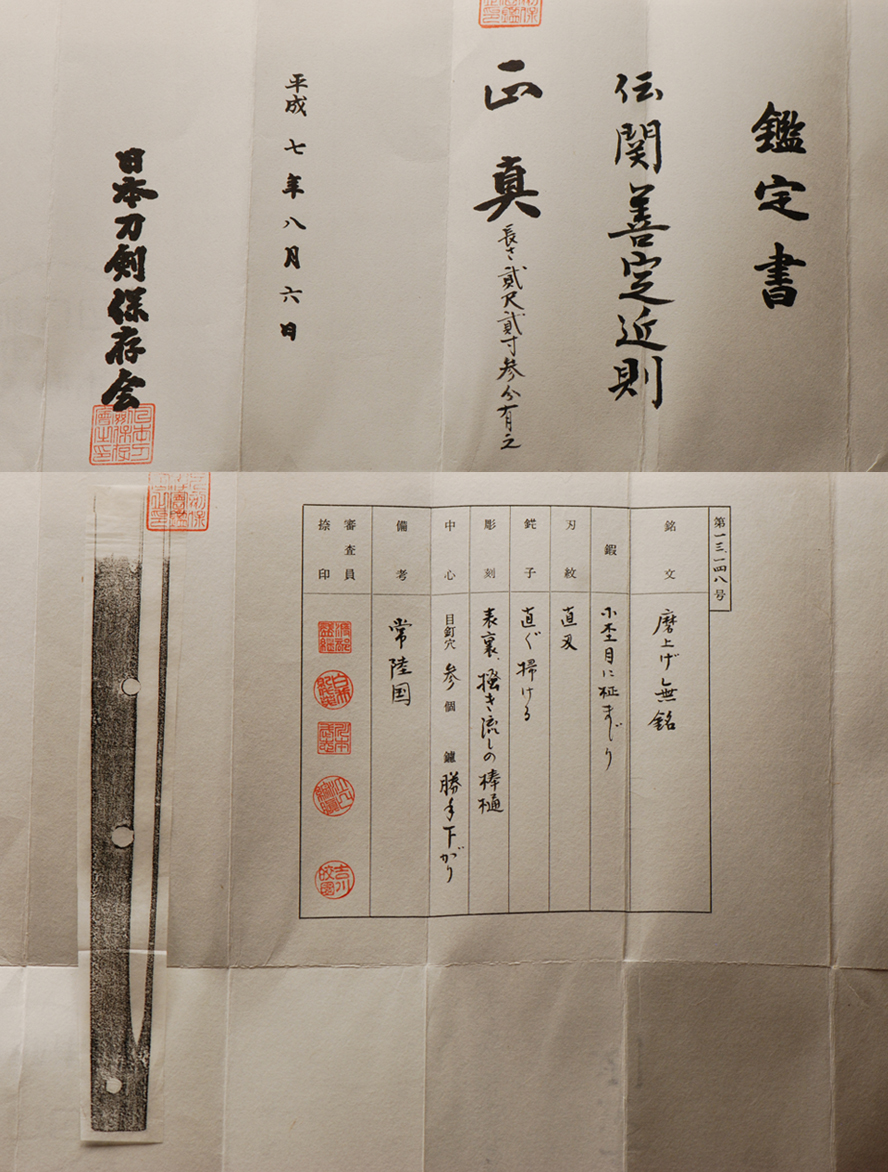 鑑定書
伝関善定近則
正真
長さ弐尺弐寸参分有之
平成七年八月六日
日本刀剣保存会
第一三、一四八号
銘文
磨上げ無銘
鍜
小杢目に柾まじり
刃紋
直刃
鋩子
直ぐ掃ける
彫刻
表裏、掻き流しの棒樋
中心
目釘穴 参個 鑢 勝手下がり
備考
常陸国
審査員
捺印